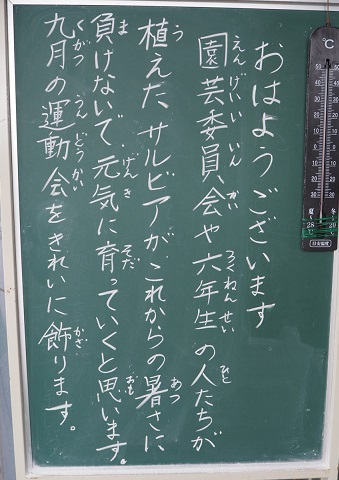 おはようございます
園芸委員会や六年生の人たちが
植えた サルビアが、これからの暑さに
負けないで 元気に育っていくと思います。
九月の運動会をきれいに飾ります。
えんげいいいんかい
ろくねんせい
ひと
う
あつ
ま
げんき
そだ
おも
くがつ
うんどうかい
かざ
℃
50
40
30
20
10
0
10
20
30
夏
冬
28
20
目安温度